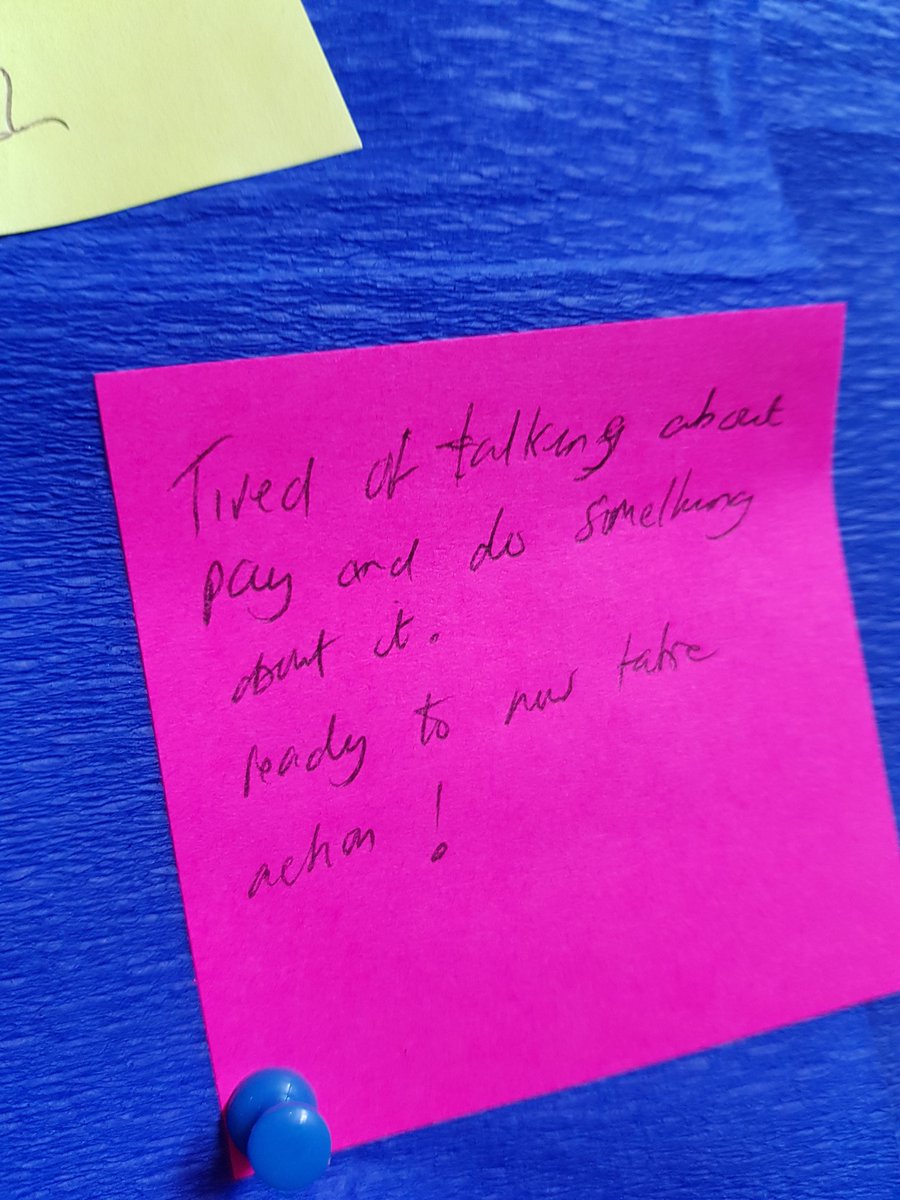 Tired of talking about
pay and do something
about it.
ready to now take
action !